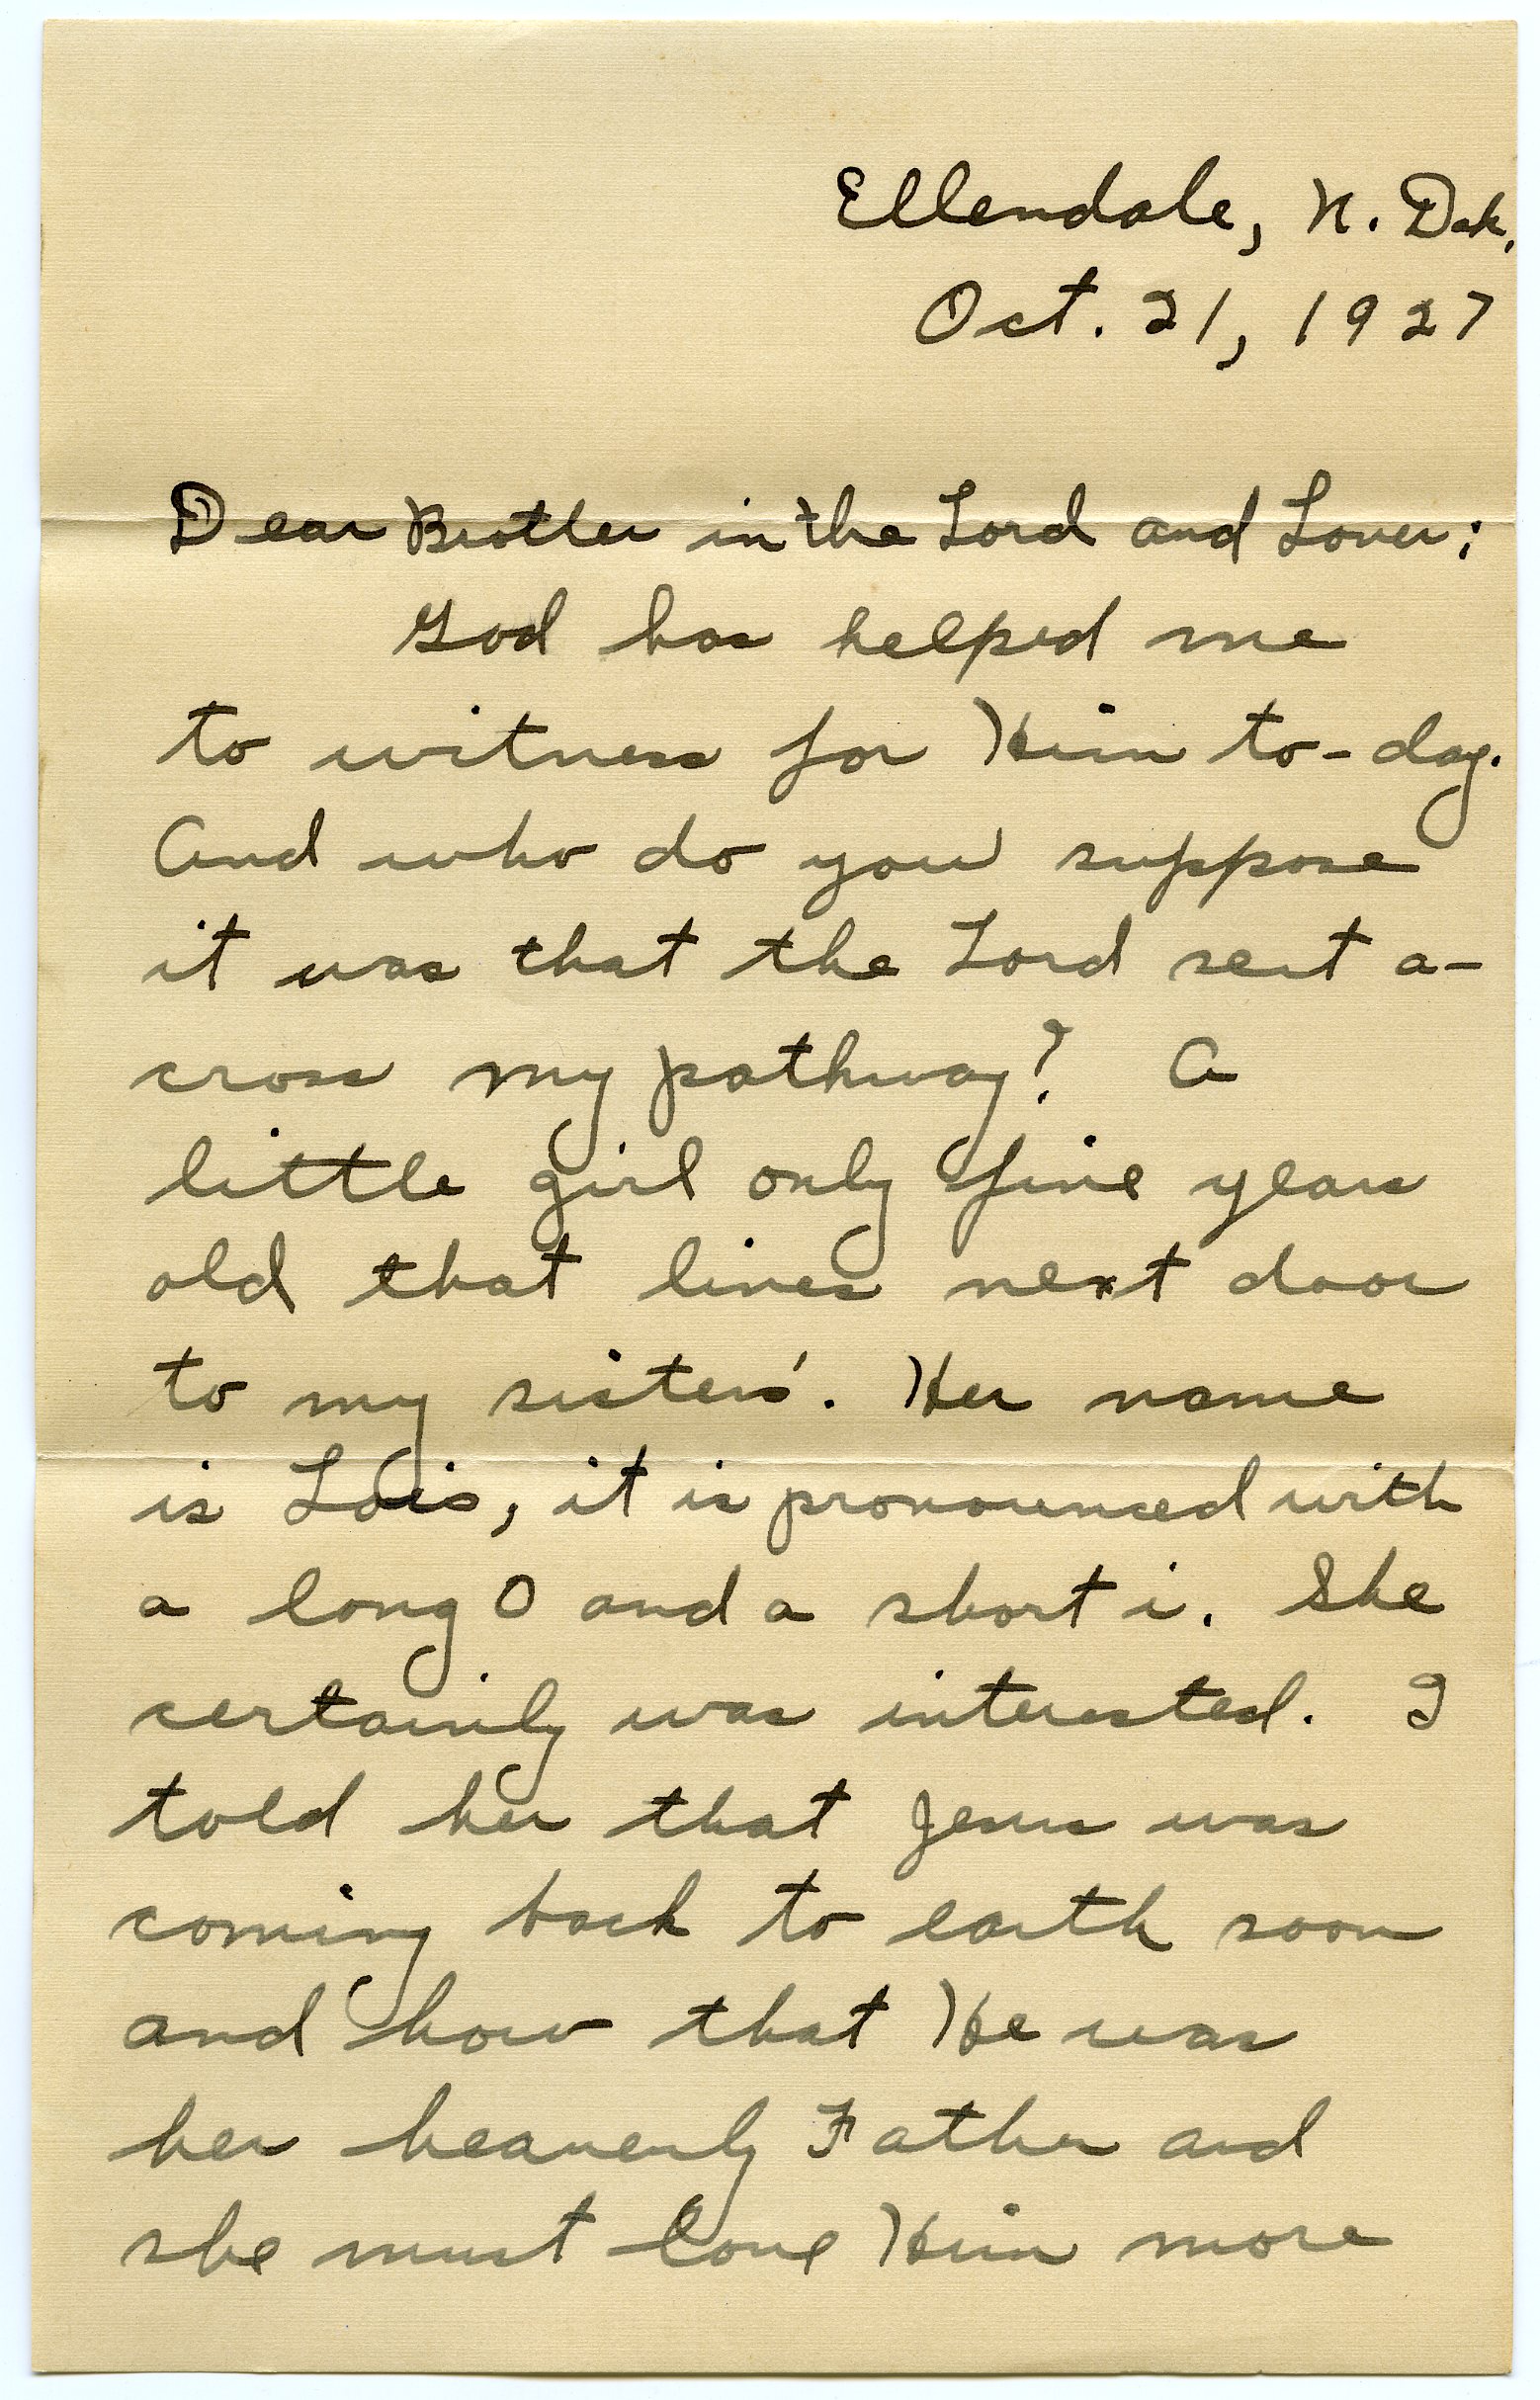 Ellendale, N. Dak.
Oct. 21, 1927
Dear Brother in the Lord and Lover;
God has helped me
to witness for Him to-day.
And who do you suppose
it was that the Lord sent a-
cross my pathway? A
little girl only five years
old that lives next door
to my sisters'. Her name
is Lois, it is pronounced with
a long O and a short i. She
certainly was interested. I
told her that Jesus was
coming back to earth soon
and how that He was
her heavenly Father and
she must love Him more